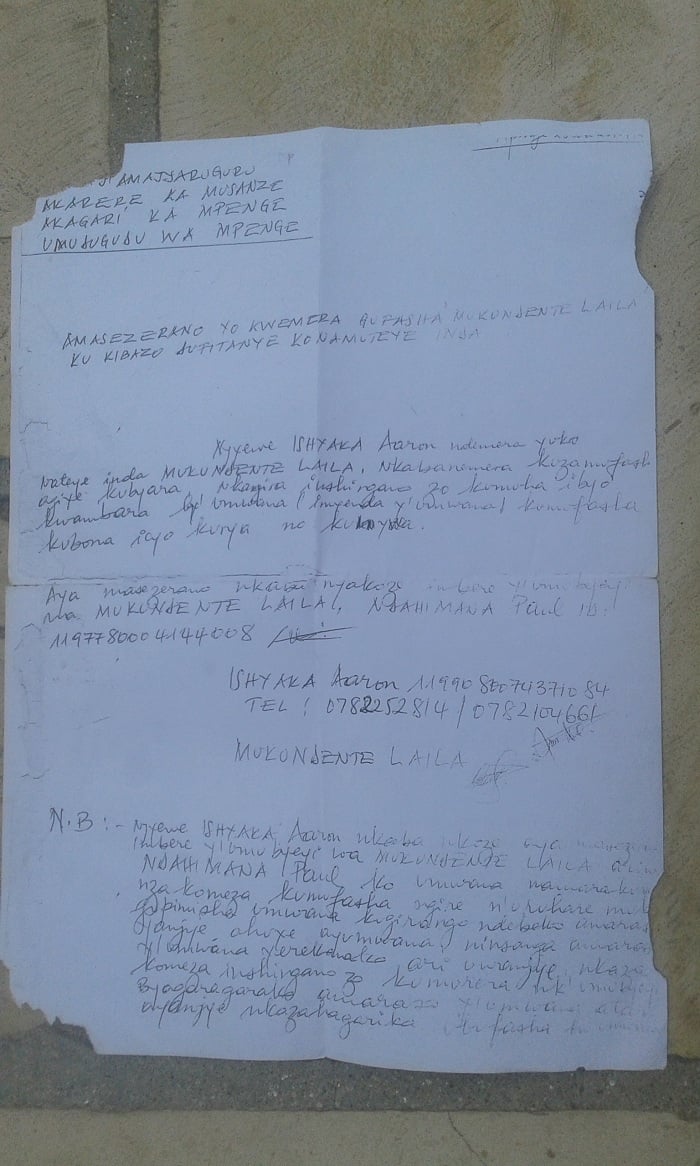 AMAJYARUGURU
AKARERE KA MUSANZE
AKAGARI KA MPENGE
UMUDUGUDU WA MPENGE
AMASEZERANO YO KWEMERA GUFASHA MUKUNDENTE LAILA
KU KIBAZO DUFITANYE KO NAMUTEYE INDA
Njyewe ISHYAKA Aaron ndemera yuko
nateye inda MUKUNDENTE LAILA, nkabanemera kuzamufash
agiye kubyara nkagira inshingano zo kumuha ibyo
kwambara by'umwana (imyenda y'umwana) kumufasha
kubona icyo kurya no kunywa.
Aya masezerano nkaba nyakoze imbere y'umubyeyi
wa MUKUNDENTE LAILA, NDAHIMANA Paul ID:
1197780004144008
ISHYAKA Aaron 1199080074371084
TEL: 0782252814 / 0782104661
MUKUNDENTE LAILA
N.B:- Njyewe ISHYAKA Aaron nkaba nkoze aya
imbere y'umubyeyi wa MUKUNDENTE LAILA
NDAHIMANA Paul ko umwana
nzakomeza kumufasha ngire n'uruhare
gupimisha umwana kugirango ndebeko amaras
ayanjye ahuye ayumwana, ninsanga amaras
y'umwana yerekanako ari uwanjye, nkaza
komeza inshingano zo kumurera nk'umubyeyi
Byagaragarako amaraso y'umwana atari
ayanjye nkazahagarika